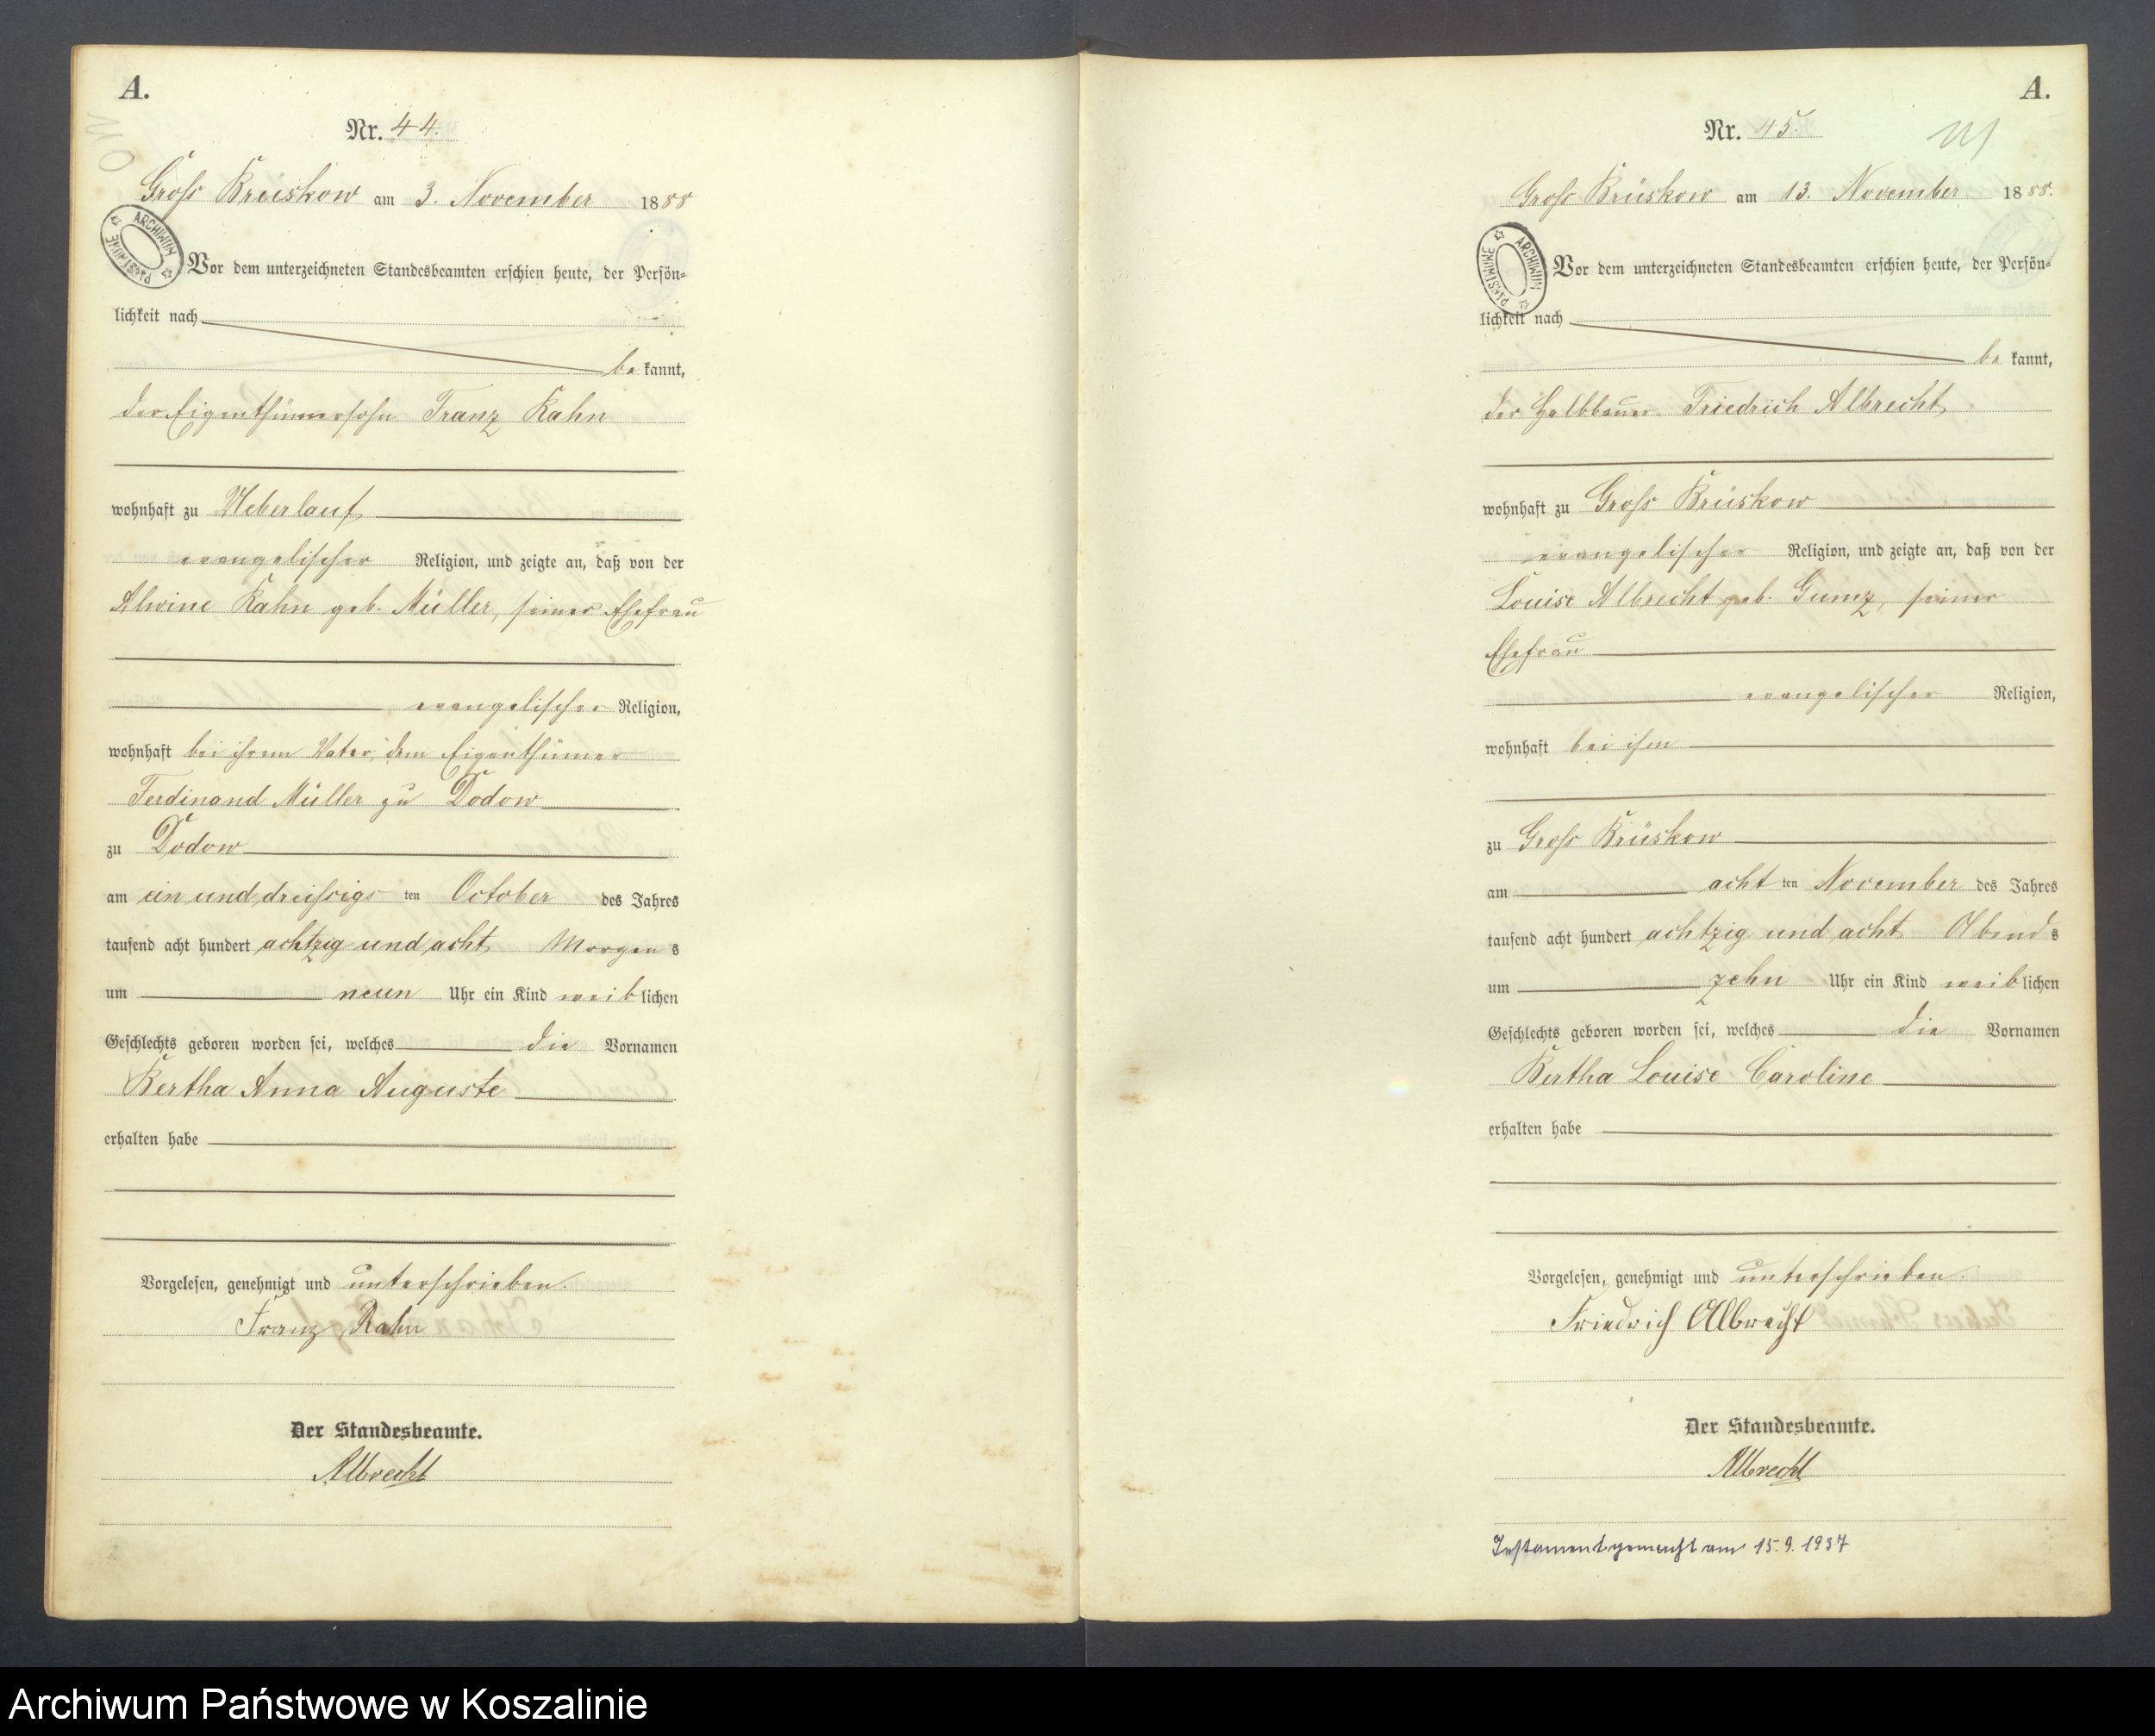 A.
110
Nr. 44.
Gross Brüskow am 3. November 1888
ARCHIWUM PAŃSTWOWE
Vor dem unterzeichneten Standesbeamten erschien heute, der Persön=
lichkeit nach
be kannt,
der Eigenthümersohn Franz Rahn
wohnhaft zu Ueberlauf
evangelischer Religion, und zeigte an, daß von der
Alwine Rahn geb. Müller, seiner Ehefrau
evangelischer Religion,
wohnhaft bei ihrem Vater, dem Eigenthümer
Ferdinand Müller zu Dodow
zu Dodow
am ein und dreissigs ten October des Jahres
tausend acht hundert achtzig und acht Morgen s
um neun Uhr ein Kind weib lichen
Geschlechts geboren worden sei, welches die Vornamen
Bertha Anna Auguste
erhalten habe
Vorgelesen, genehmigt und unterschrieben.
Franz Rahn
Der Standesbeamte.
Albrecht
A.
Nr. 45.
111
Gross Brüskow am 13. November 1888.
ARCHIWUM PAŃSTWOWE
Vor dem unterzeichneten Standesbeamten erschien heute, der Persön=
lichkeit nach
be kannt,
der Halbbauer Friedrich Albrecht
wohnhaft zu Gross Brüskow
evangelischer Religion, und zeigte an, daß von der
Louise Albrecht geb. Gumz, seiner
Ehefrau
evangelischer Religion,
wohnhaft bei ihm
zu Gross Brüskow
am acht ten November des Jahres
tausend acht hundert achtzig und acht Abend s
um zehn Uhr ein Kind weib lichen
Geschlechts geboren worden sei, welches die Vornamen
Bertha Louise Caroline
erhalten habe
Vorgelesen, genehmigt und unterschrieben.
Friedrich Albrecht
Der Standesbeamte.
Albrecht
Testament gemacht am 15.9.1937
Archiwum Państwowe w Koszalinie